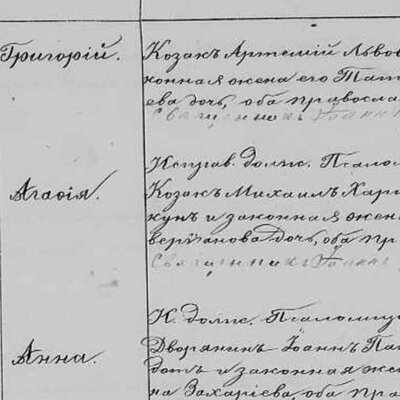 Григорій.
Козакъ Артемій Львов
конная жена его Тат
ева дочь, оба правосла
Священникъ Іоанн
Исправ. долж. Псалом
Агафія.
Козакъ Михаилъ Хари
кун и законная жен
дочь, оба пр
Священникъ Іоанн
И. долж. Псаломщ
Анна.
Дворянинъ Іоаннъ Па
и законная же
на Захаріева, оба пра